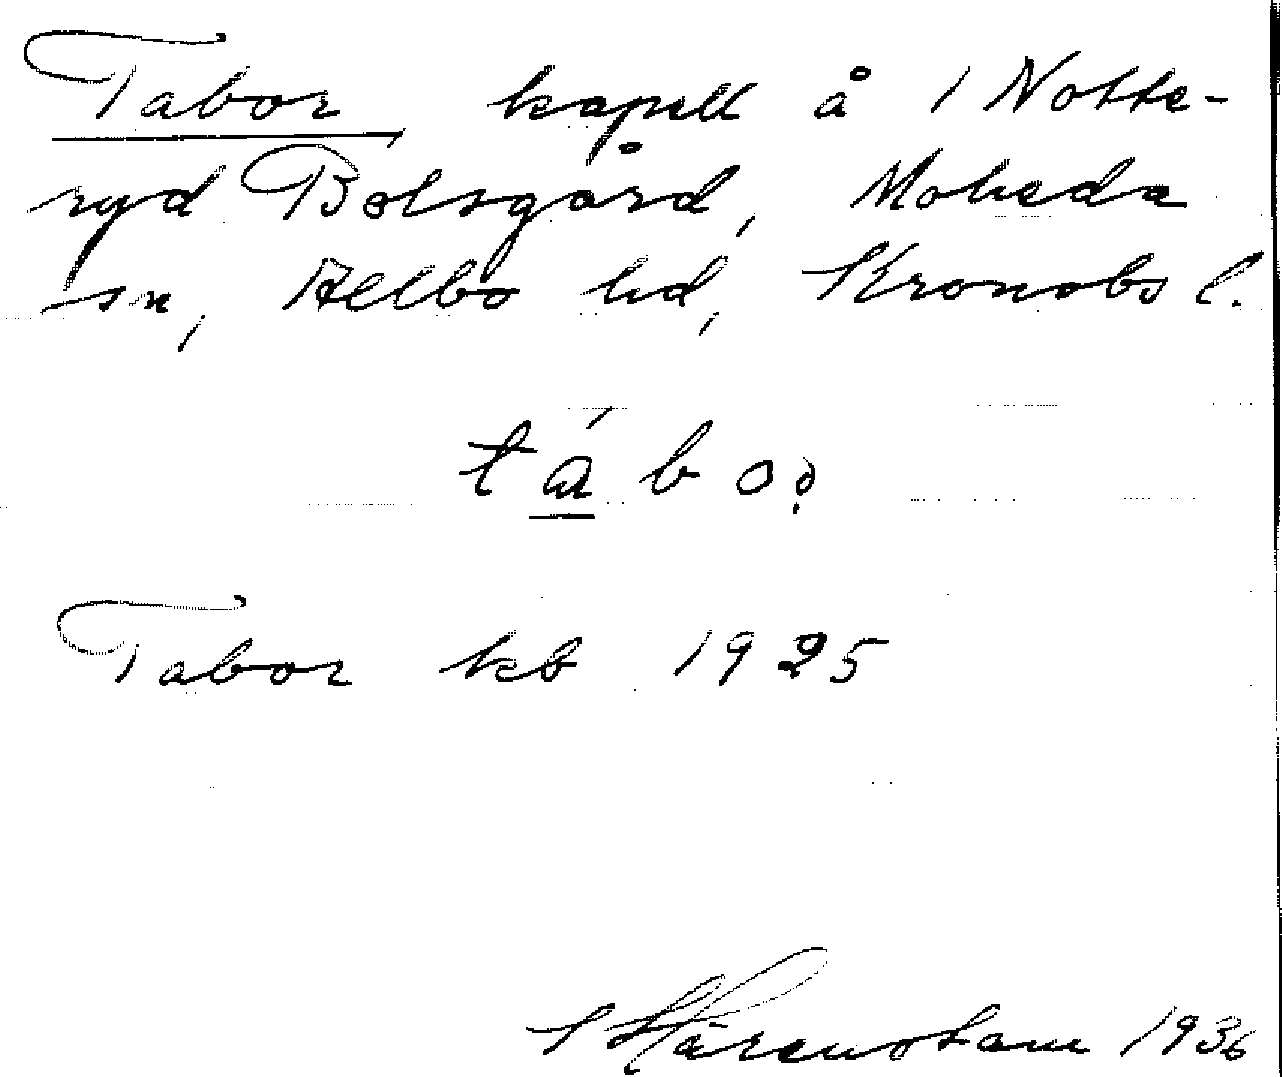 Tabor, kapell å 1 Notte-
ryd Bolsgård, Moheda
sn, Allbo hd, Kronobs l.
tá b o
Tabor kb 1925
S Härenstam 1936